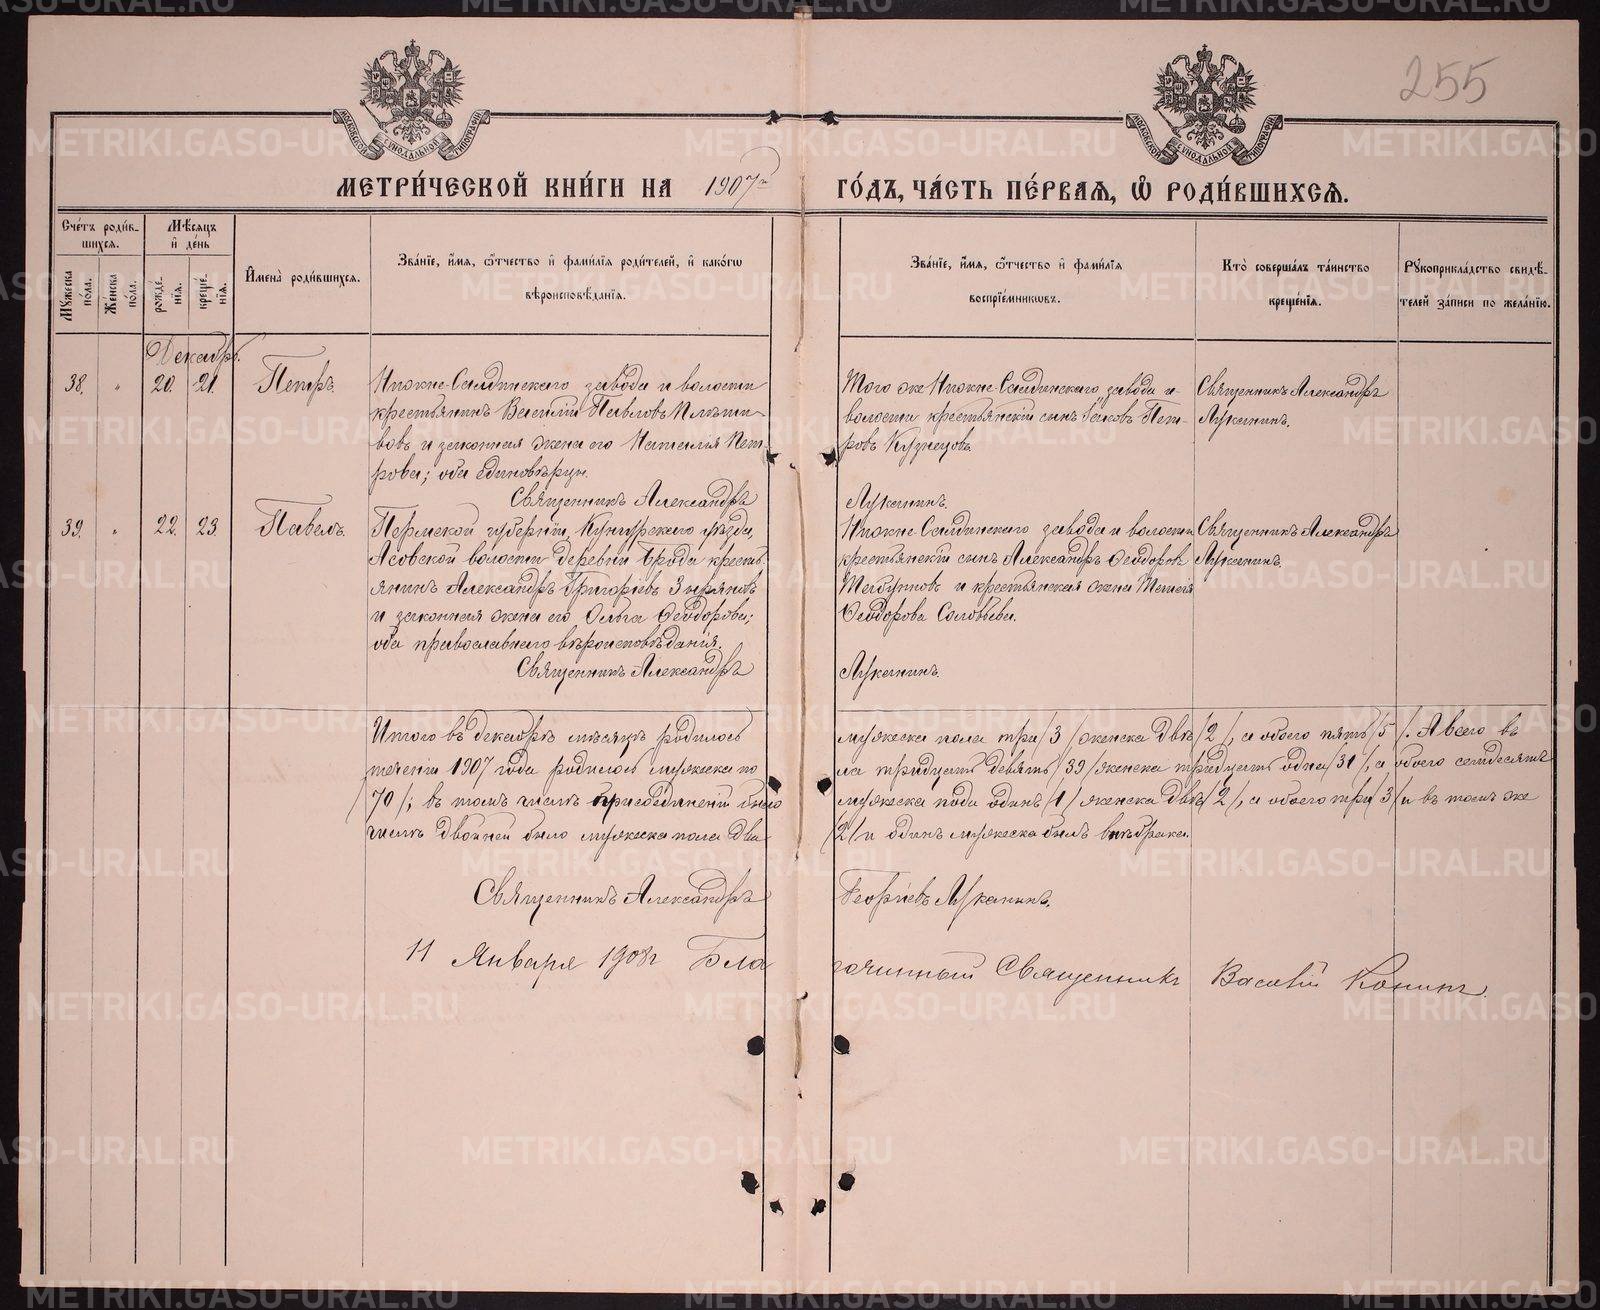 255
МОСКОВСКОЙ СѴНОДАЛЬНОЙ ТИПОГРАФІИ
МОСКОВСКОЙ СѴНОДАЛЬНОЙ ТИПОГРАФІИ
МЕТРИ́ЧЕСКОЙ КНИ́ГИ НА 1907й ГО́ДЪ, ЧА́СТЬ ПЕ́РВАѦ, Ѡ҆ РОДИ́ВШИХСѦ.
Сче́тъ роди́в-
шихся.
Мꙋжеска по́ла.
Же́нска по́ла.
Мѣ́сяцъ
и҆ де́нь
рожде́-
нїя.
креще́-
нїя.
И҆мена̀ роди́вшихся.
Зва́нїе, и҆́мя, ѻ҆́тчество и҆ фами́лїя роди́телей, и҆ како́гѡ
вѣроисповѣ́данїя.
Зва́нїе, и҆́мя, ѻ҆́тчество и҆ фами́лїя
воспрїе́мниковъ.
Кто̀ соверша́лъ та́инство
креще́нїя.
Рꙋкоприкла́дство свидѣ́-
телей за́писи по жела́нїю.
Декабрь.
38. " 20. 21. Петръ.
Нижне-Салдинскаго завода и волости
крестьянинъ Василій Павловъ
и законная жена его Наталія Пет-
рова; оба единовѣрцы.
Священникъ Александръ
Того же Нижне-Салдинскаго завода и
волости крестьянскій сынъ Іаковъ Пет-
ровъ Кузнецовъ.
Луканинъ.
Священникъ Александръ
Луканинъ.
39. " 22. 23. Павелъ.
Пермской губерніи, Кунгурскаго уѣзда,
Асовской волости деревни Брода кресть-
янинъ Александръ Григорьевъ Зыряновъ
и законная жена его Ольга Ѳеодорова;
оба православнаго вѣроисповѣданія.
Священникъ Александръ
Нижне-Салдинскаго завода и волости
крестьянскій сынъ Александръ Ѳеодоровъ
и крестьянская жена
Ѳеодорова Соловьева.
Луканинъ.
Священникъ Александръ
Луканинъ.
Итого въ декабрѣ мѣсяцѣ родилось мужеска пола три /3/ женска двѣ /2/, а обоего пять /5/. А всего въ
теченіи 1907 года родилось мужеска по ла тридцать девять /39/ женска тридцать одна /31/, а обоего семьдесятъ
/70/; въ томъ числѣ присоединеній было мужеска пола одинъ /1/ женска двѣ /2/, а обоего три /3/ и въ томъ же
числѣ двойней было мужеска пола два /2/ и одинъ мужеска былъ внѣ брака.
Священникъ Александръ Георгіевъ Луканинъ.
11 Января 1908 г Благочинный Священникъ Конинъ.
METRIKI.GASO-URAL.RU